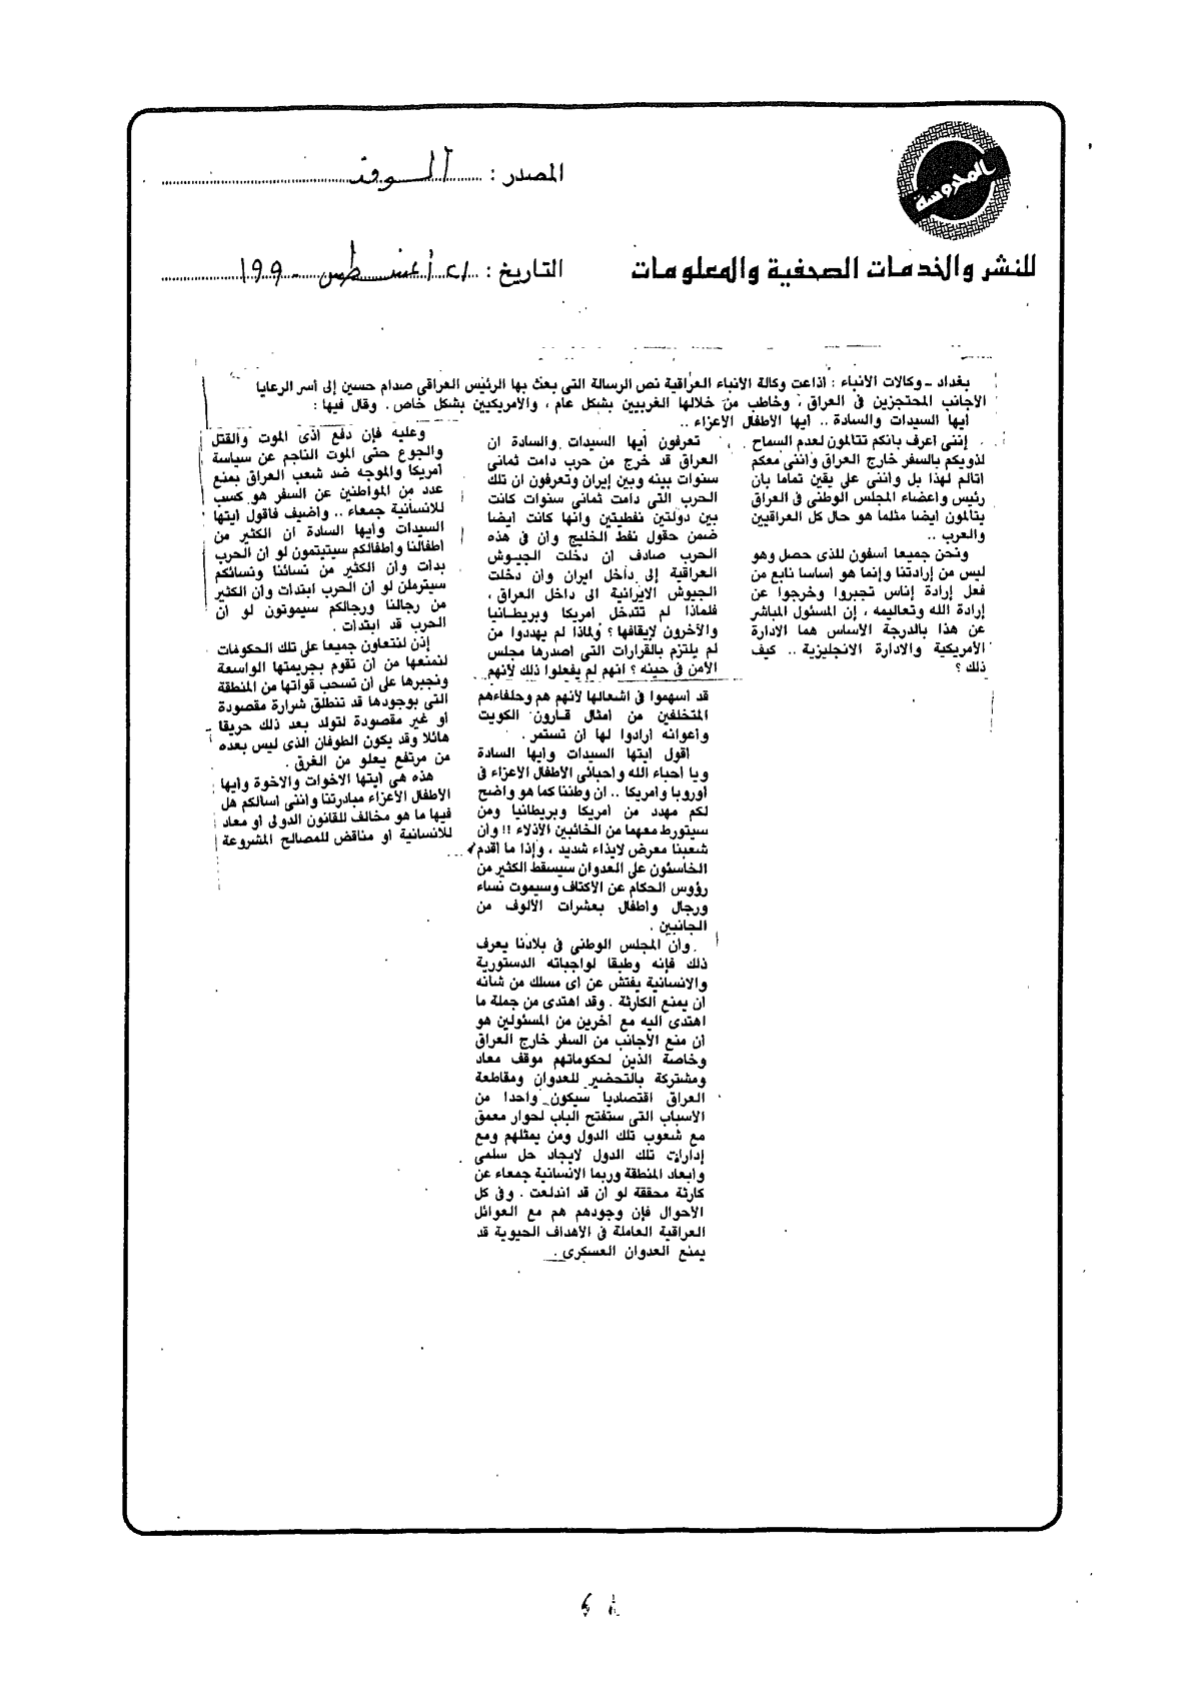 المحروسة
للنشر والخدمات الصحفية والمعلومات
المصدر : الوفد
التاريخ : ٢١ أغسطس ١٩٩٠
بغداد - وكالات الأنباء : أذاعت وكالة الأنباء العراقية نص الرسالة التى بعث بها الرئيس العراقى صدام حسين إلى أسر الرعايا
الأجانب المحتجزين فى العراق ، وخاطب من خلالها الغربيين بشكل عام ، والأمريكيين بشكل خاص . وقال فيها :
أيها السيدات والسادة .. أيها الأطفال الأعزاء ..
إننى أعرف بأنكم تتألمون لعدم السماح
لذويكم بالسفر خارج العراق وأننى معكم
أتألم لهذا بل وأننى على يقين تماما بأن
رئيس وأعضاء المجلس الوطنى فى العراق
يتألمون أيضا مثلما هو حال كل العراقيين
والعرب ..
ونحن جميعا آسفون للذى حصل وهو
ليس من إرادتنا وإنما هو أساسا نابع من
فعل إرادة إناس تجبروا وخرجوا عن
إرادة الله وتعاليمه ، إن المسئول المباشر
عن هذا بالدرجة الأساس هما الادارة
الأمريكية والادارة الانجليزية .. كيف
ذلك ؟
تعرفون أيها السيدات والسادة ان
العراق قد خرج من حرب دامت ثمانى
سنوات بينه وبين إيران وتعرفون ان تلك
الحرب التى دامت ثمانى سنوات كانت
بين دولتين نفطيتين وانها كانت أيضا
ضمن حقول نفط الخليج وأن فى هذه
الحرب صادف أن دخلت الجيوش
العراقية إلى داخل ايران وأن دخلت
الجيوش الايرانية الى داخل العراق ،
فلماذا لم تتدخل أمريكا وبريطانيا
والآخرون لإيقافها ؟ ولماذا لم يهددوا من
لم يلتزم بالقرارات التى أصدرها مجلس
الأمن فى حينه ؟ انهم لم يفعلوا ذلك لأنهم
قد أسهموا فى اشعالها لأنهم هم وحلفاءهم
المتخلفين من أمثال قارون الكويت
وأعوانه أرادوا لها أن تستمر .
أقول أيتها السيدات وأيها السادة
ويا أحباء الله وأحبائى الأطفال الأعزاء فى
أوروبا وأمريكا .. ان وطننا كما هو واضح
لكم مهدد من أمريكا وبريطانيا ومن
سيتورط معهما من الخائبين الأذلاء !! وأن
شعبنا معرض لايذاء شديد ، وإذا ما أقدم
الخاسئون على العدوان سيسقط الكثير من
رؤوس الحكام عن الأكتاف وسيموت نساء
ورجال وأطفال بعشرات الألوف من
الجانبين .
وأن المجلس الوطنى فى بلادنا يعرف
ذلك فإنه وطبقا لواجباته الدستورية
والانسانية يفتش عن أى مسلك من شأنه
أن يمنع الكارثة . وقد اهتدى من جملة ما
اهتدى اليه مع آخرين من المسئولين هو
أن منع الأجانب من السفر خارج العراق
وخاصة الذين لحكوماتهم موقف معاد
ومشتركة بالتحضير للعدوان ومقاطعة
العراق اقتصاديا سيكون واحدا من
الأسباب التى ستفتح الباب لحوار معمق
مع شعوب تلك الدول ومن يمثلهم ومع
إدارات تلك الدول لايجاد حل سلمى
وابعاد المنطقة وربما الانسانية جمعاء عن
كارثة محققة لو أن قد اندلعت . وفى كل
الأحوال فإن وجودهم هم مع العوائل
العراقية العاملة فى الأهداف الحيوية قد
يمنع العدوان العسكرى .
وعليه فإن دفع أذى الموت والقتل
والجوع حتى الموت الناجم عن سياسة
أمريكا والموجه ضد شعب العراق بمنع
عدد من المواطنين عن السفر هو كسب
للانسانية جمعاء .. وأضيف فأقول أيتها
السيدات وأيها السادة ان الكثير من
أطفالنا وأطفالكم سيتيتمون لو أن الحرب
بدأت وأن الكثير من نسائنا ونسائكم
سيترملن لو أن الحرب ابتدأت وأن الكثير
من رجالنا ورجالكم سيموتون لو أن
الحرب قد ابتدأت .
إذن لنتعاون جميعا على تلك الحكومات
لنمنعها من أن تقوم بجريمتها الواسعة
ونجبرها على أن تسحب قواتها من المنطقة
التى بوجودها قد تنطلق شرارة مقصودة
أو غير مقصودة لتولد بعد ذلك حريقا
هائلا وقد يكون الطوفان الذى ليس بعده
من مرتفع يعلو من الغرق .
هذه هى أيتها الأخوات والاخوة وأيها
الأطفال الأعزاء مبادرتنا وأننى أسألكم هل
فيها ما هو مخالف للقانون الدولى أو معاد
للانسانية أو مناقض للمصالح المشروعة